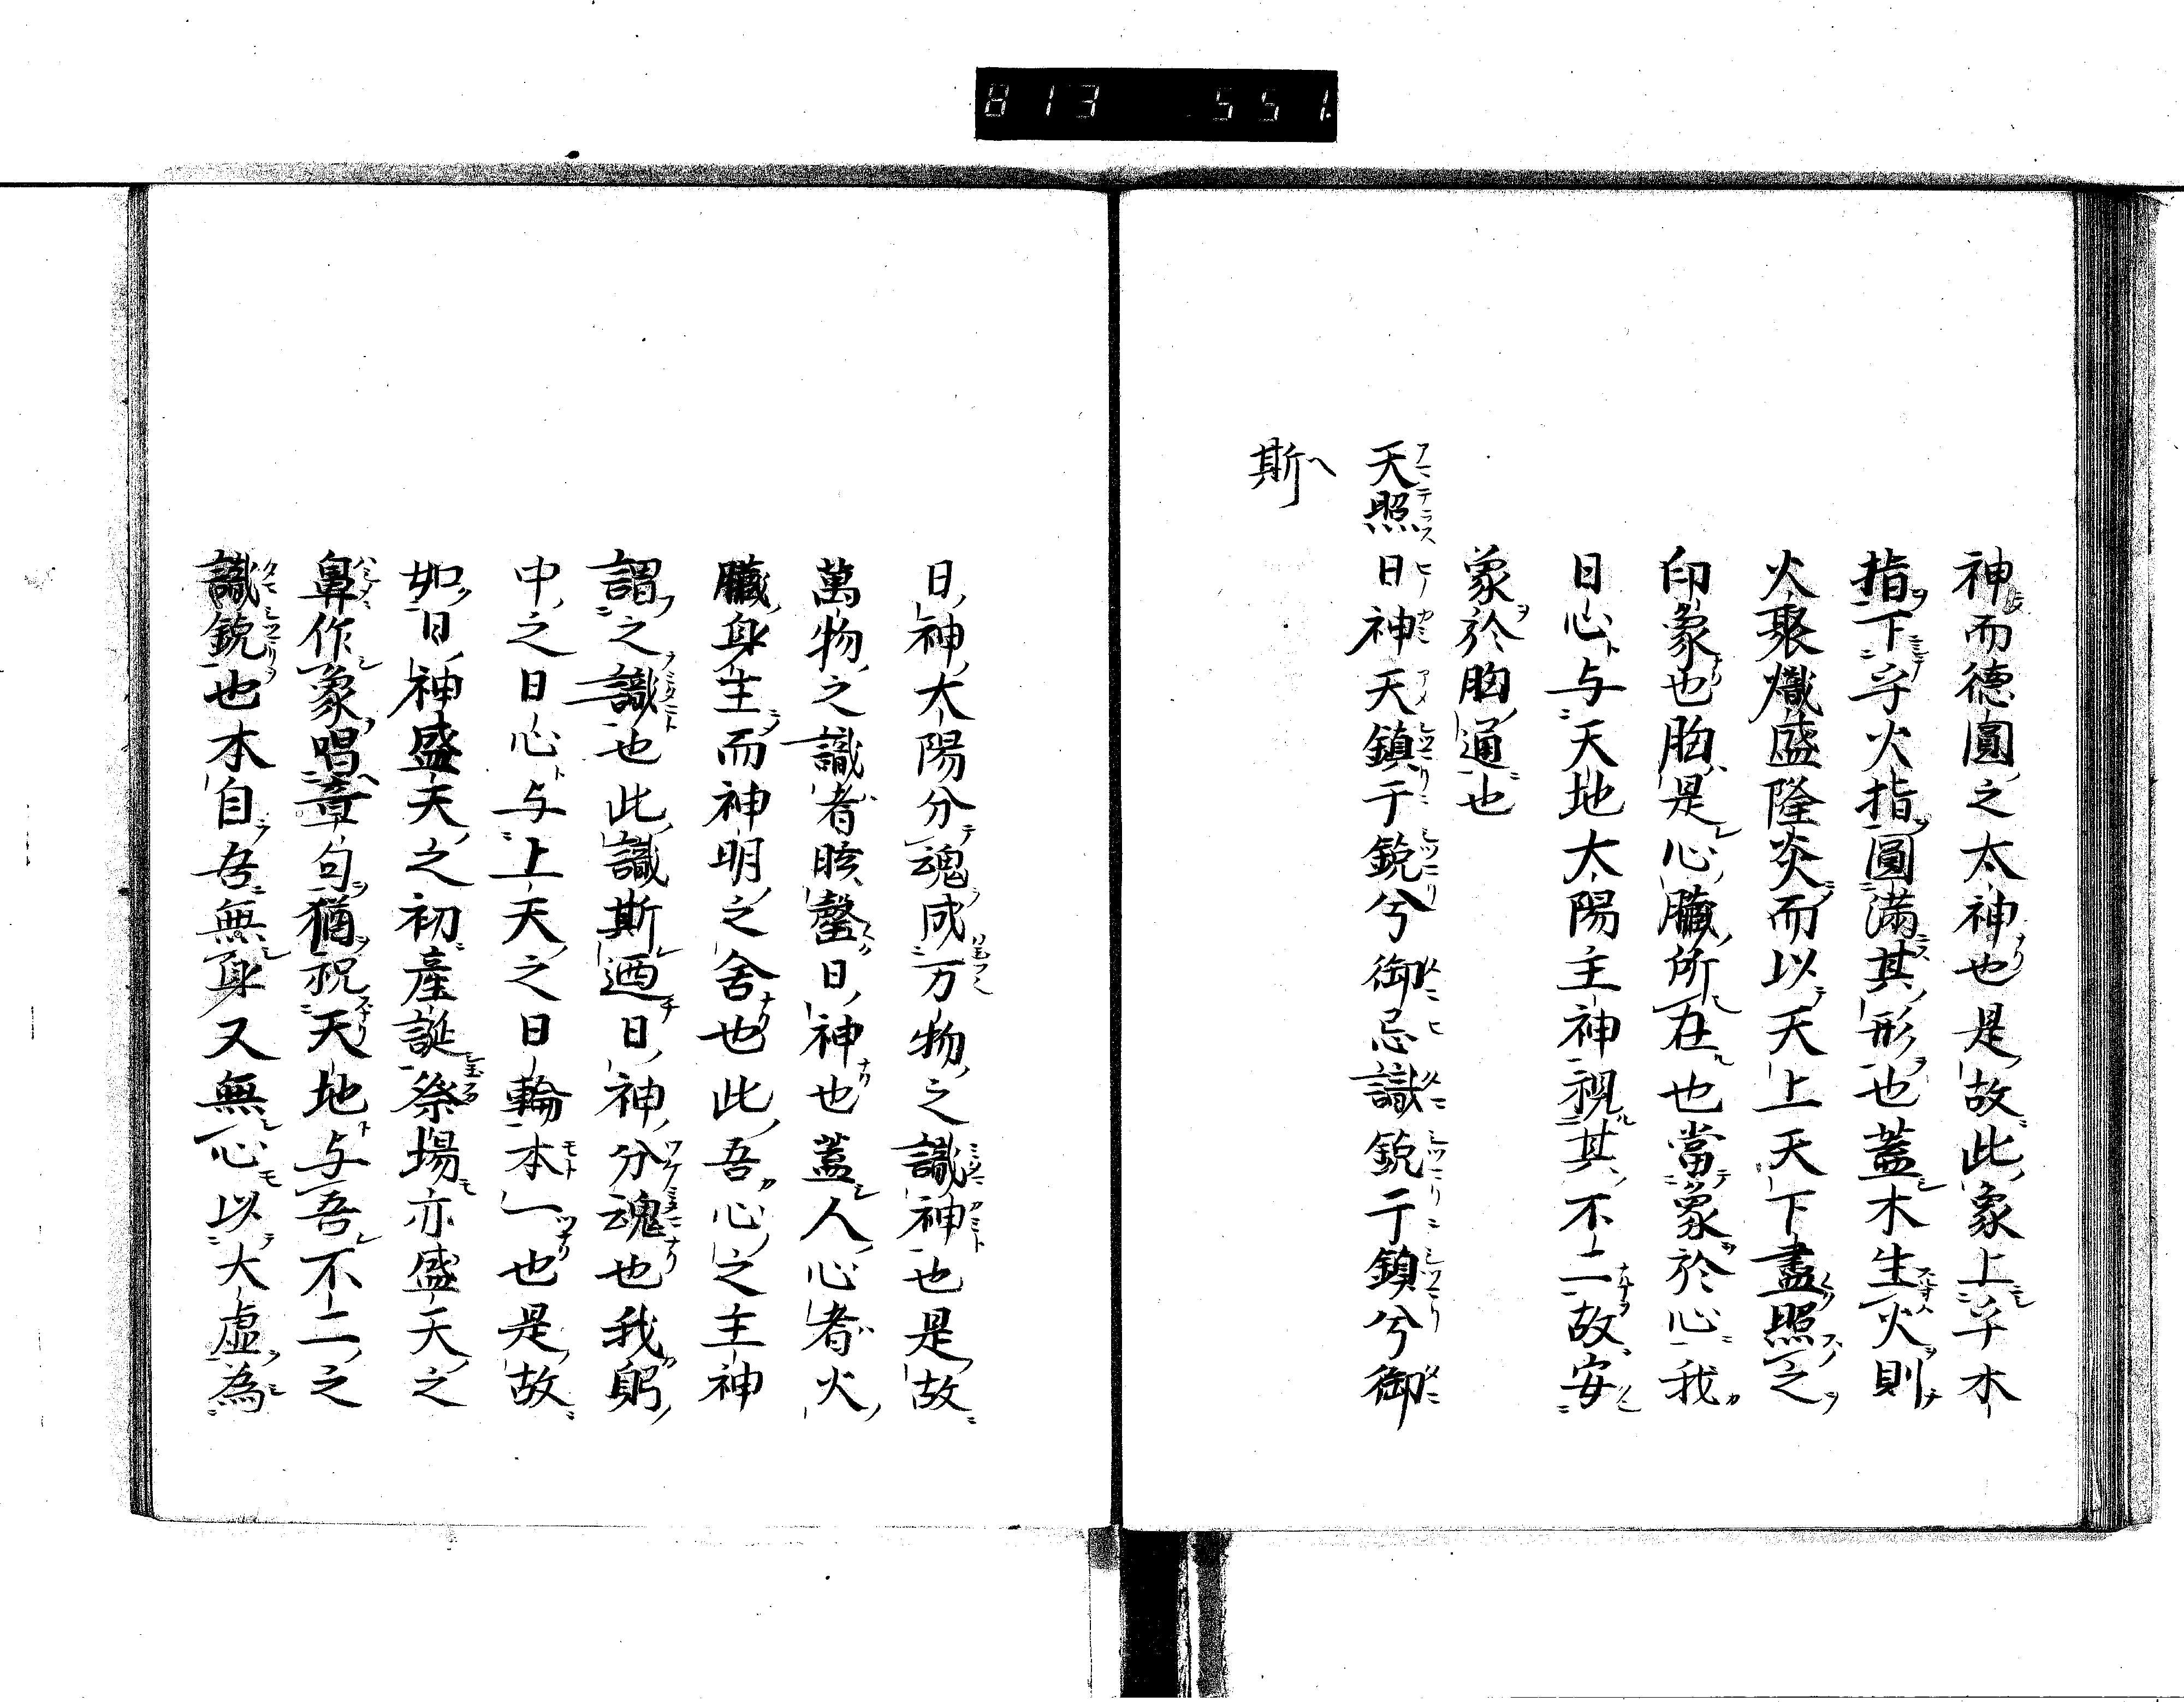 813 551.
神而德圓之太神也是故此象上孚木
指下孚火指圓滿其形也蓋木生火則
火聚熾盛隆炎而以天上天下盡照之
印象也胸是心臓所在也當象於心我
日心与天地太陽主神視其不二故安
象於胸通也
天照日神天鎮于鋭兮御忌識鋭于鎮兮御
斯
日神太陽分魂成万物之識神也是故
萬物之識者眩罄日神也蓋人心者火
臓身生而神明之舍也此吾心之主神
謂之識也此識斯迺日神分魂也我躬
中之日心与上天之日輪本一也是故
如日神盛天之初產誕祭場亦盛天之
鼻作象唱章句猶祝天地与吾不二之
識鋭也本自吾無身又無心以大虛為